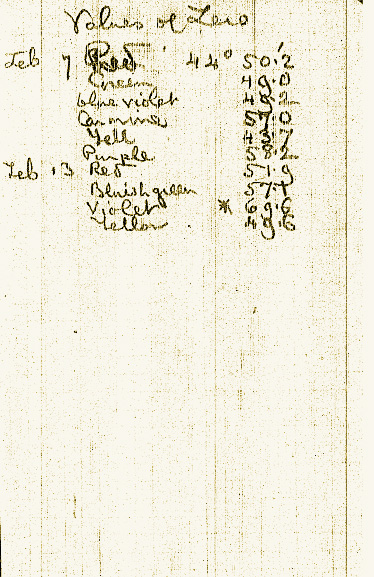 Values of Zero
Feb 7 Red 44° 50.'2
Green 49.0
blue violet
Carmine
Yell
Purple
Feb 13 Red 51.9
Bluish green
Violet * 69.6
Yellow 49.6